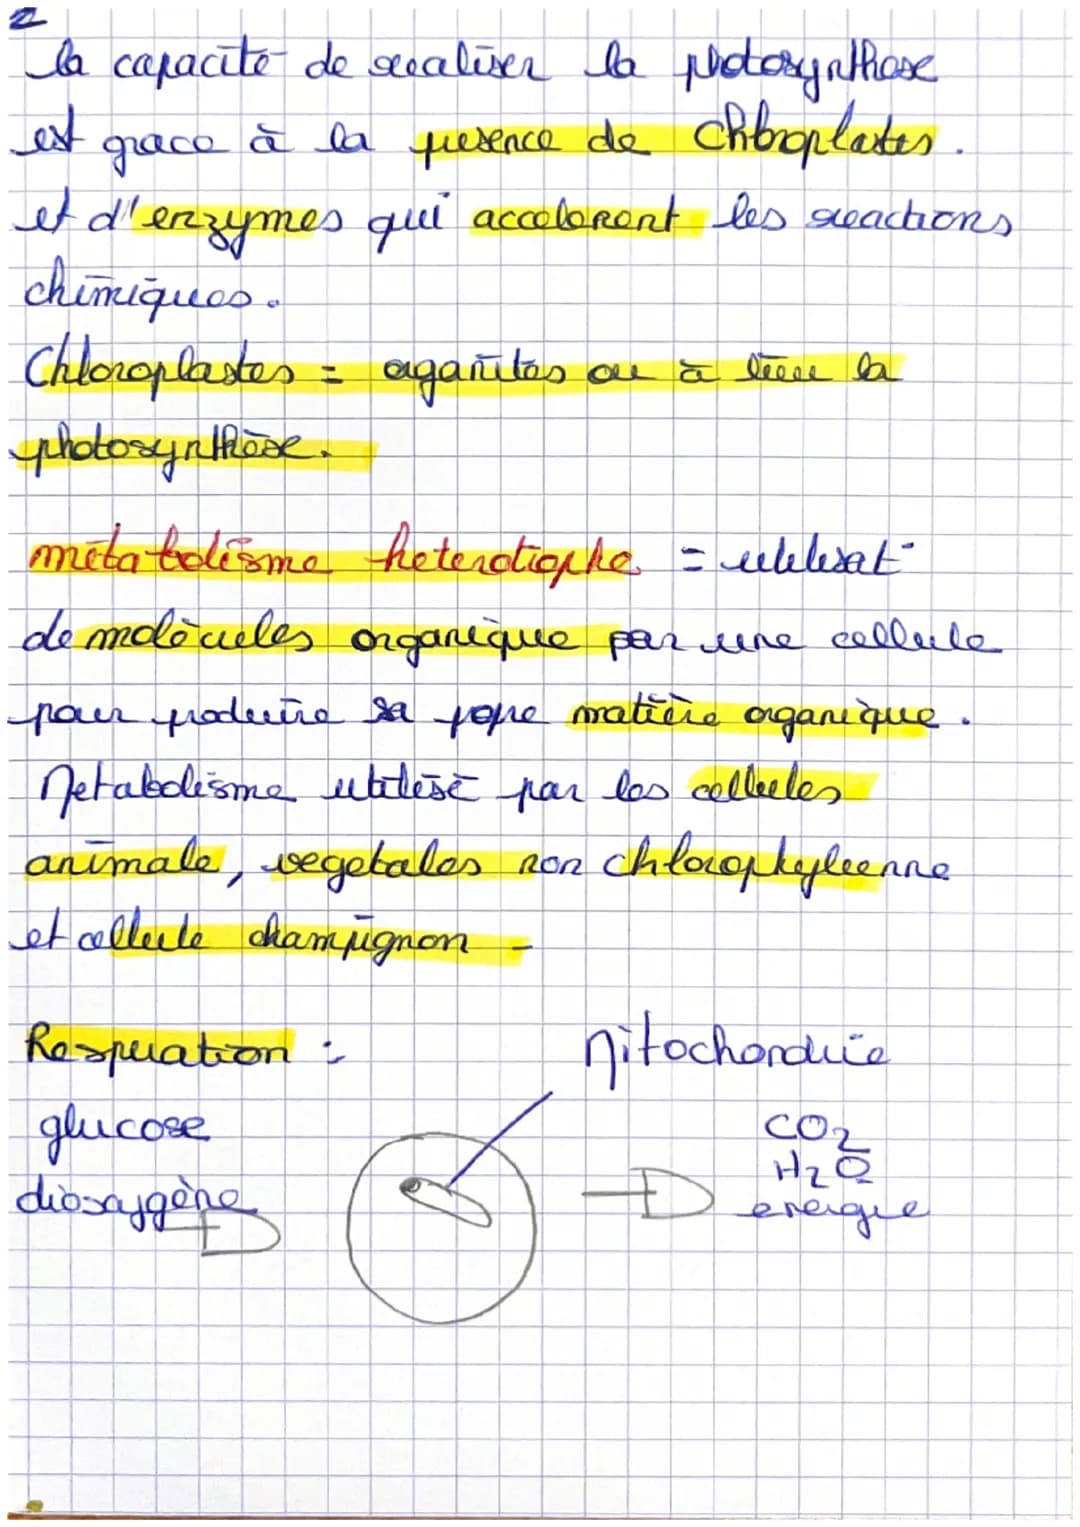 2
la capacité de realiser la photosynthose
est grace à la presence de Chloroplastes.
et d'enzymes qui accelorent les reactions
chimiques.
Chloroplastes = oganites ou a lieu la
photosynthèse.
métabolisme heterotrophe = utilisat°
de molécules organique par une cellule
pour produire sa prope matière organique.
Metabolisme utilisé par les cellules
animale, vegetales non chlorophyleenne
et cellule champignon -
Respiration :
Mitochondrie
glucose
dioxygène
CO2
H2O
energie